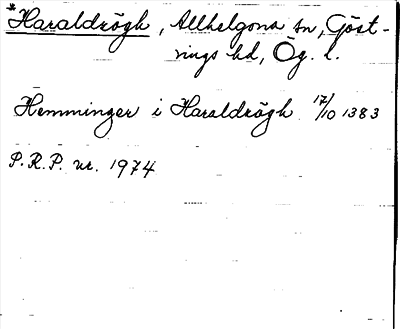 *Haraldrögh, Allhelgona sn, Göst-
rings hd, Ög. l.
Hemminger i Haraldrögh 17/10 1383
P.R.P. nr. 1974